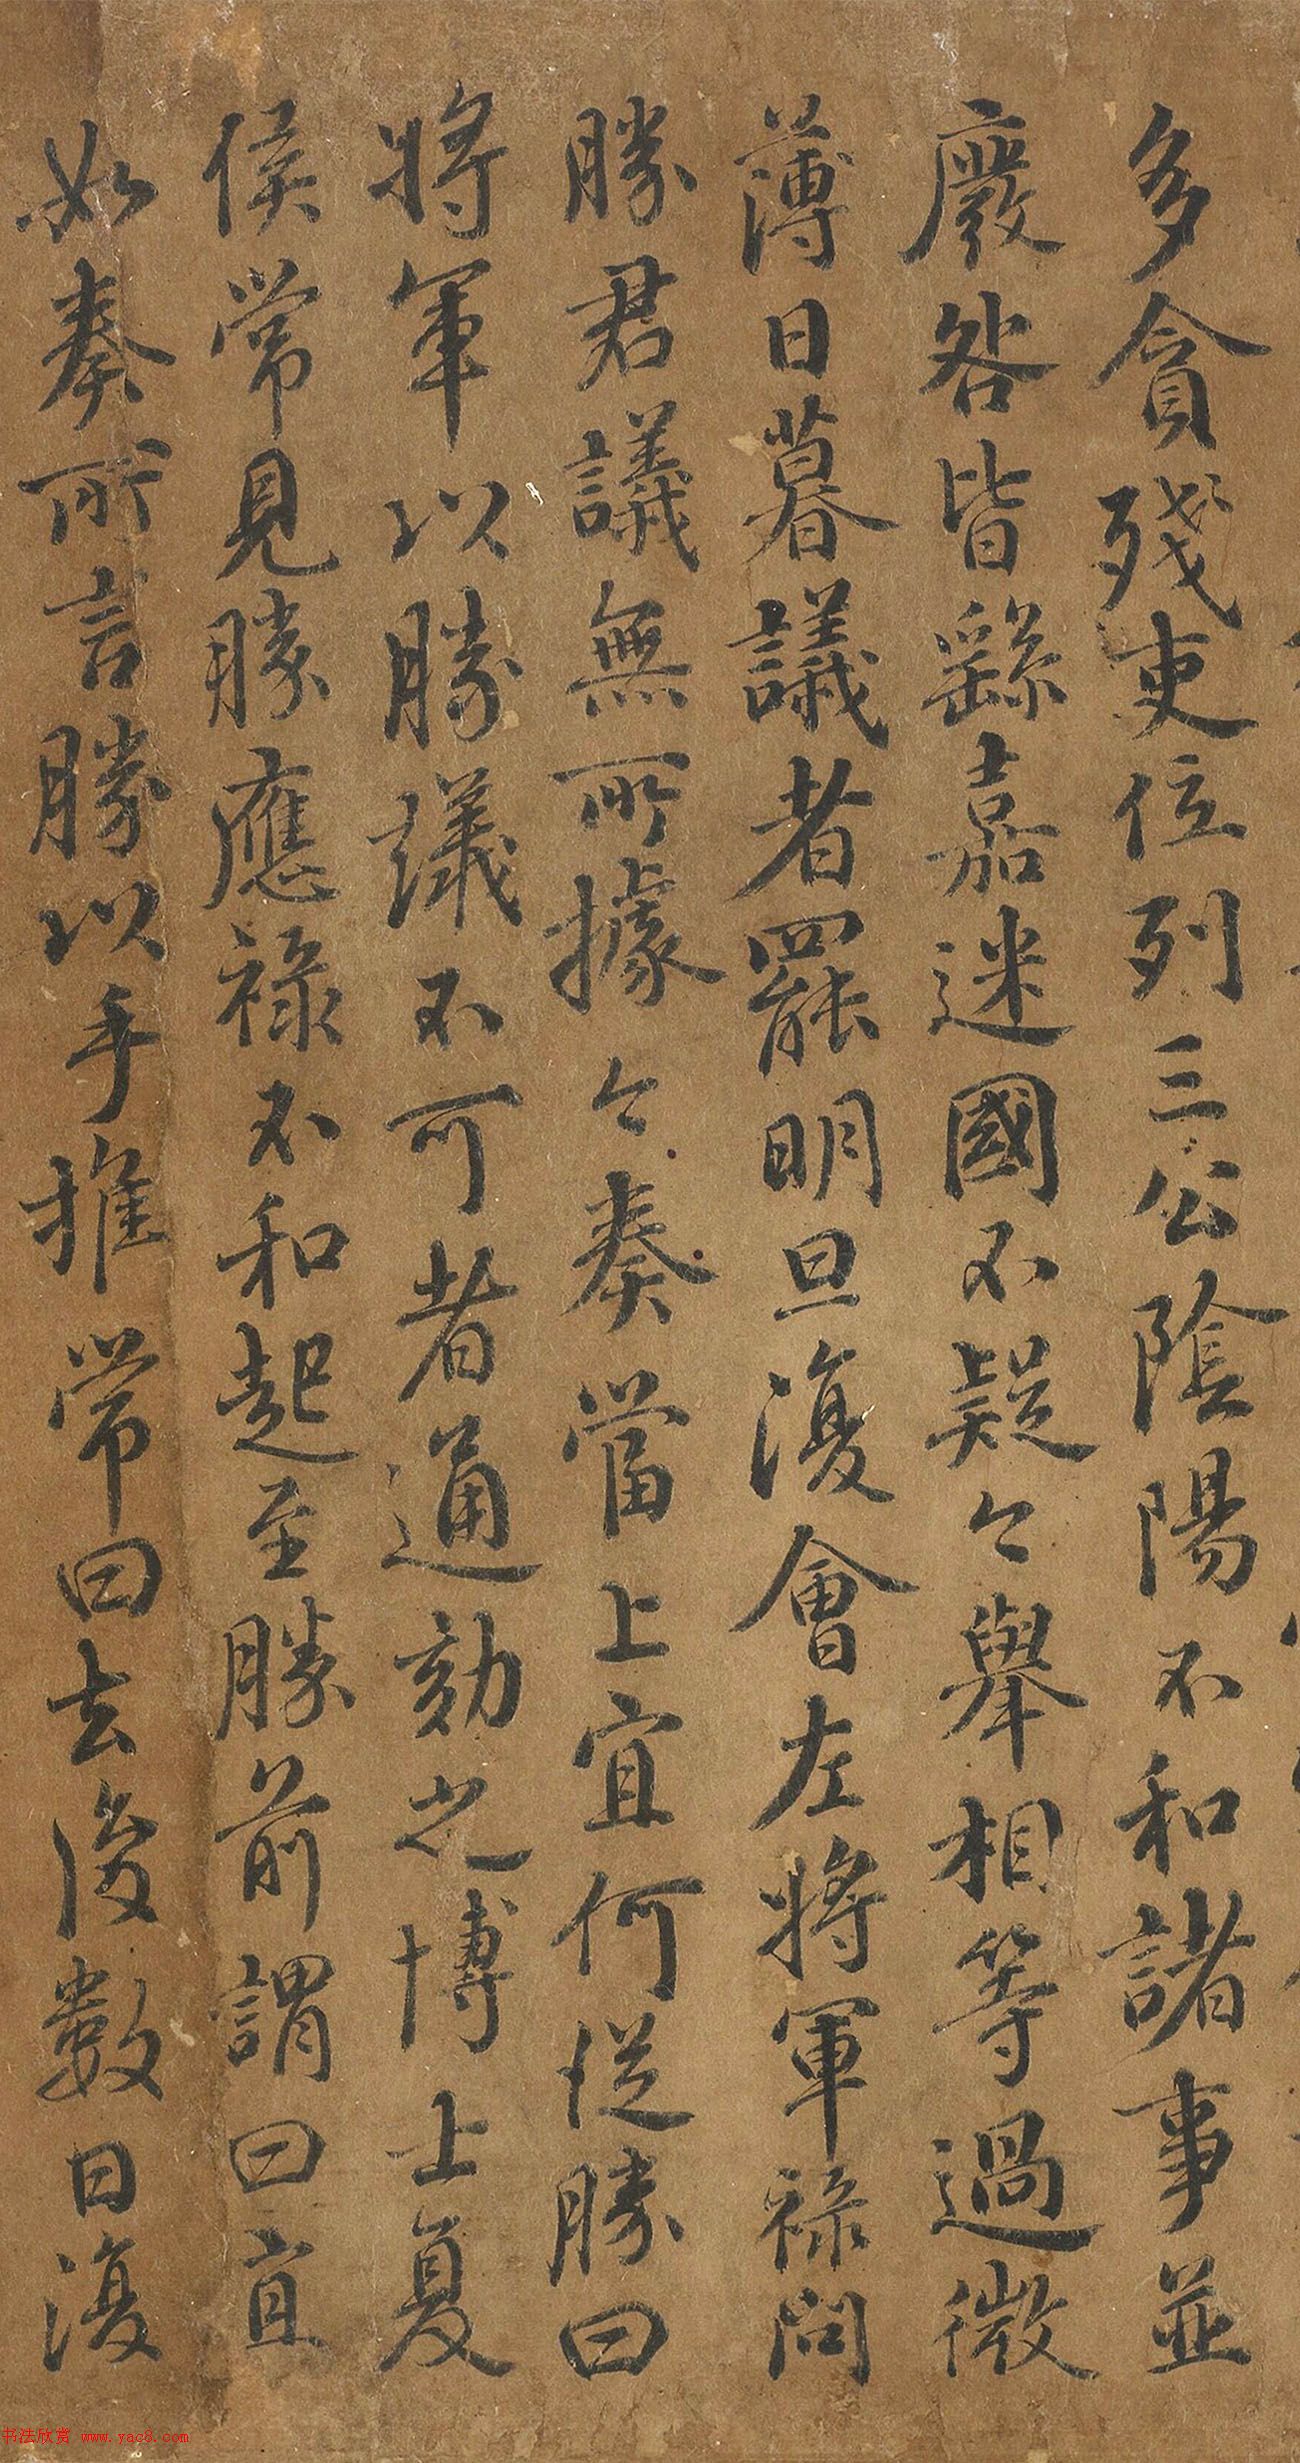 多貪殘吏位列三公陰陽不和諸事並
廢咎皆繇嘉迷國不疑々舉相等過微
薄日暮議者罷明旦復會左將軍祿問
勝君議無所據々奏當上宜何從勝曰
將軍以勝議不可者通劾之博士夏
侯常見勝應祿不和起至勝前謂曰宜
如奏所言勝以手推常曰去後數日復
书法欣赏 www.yac8.com